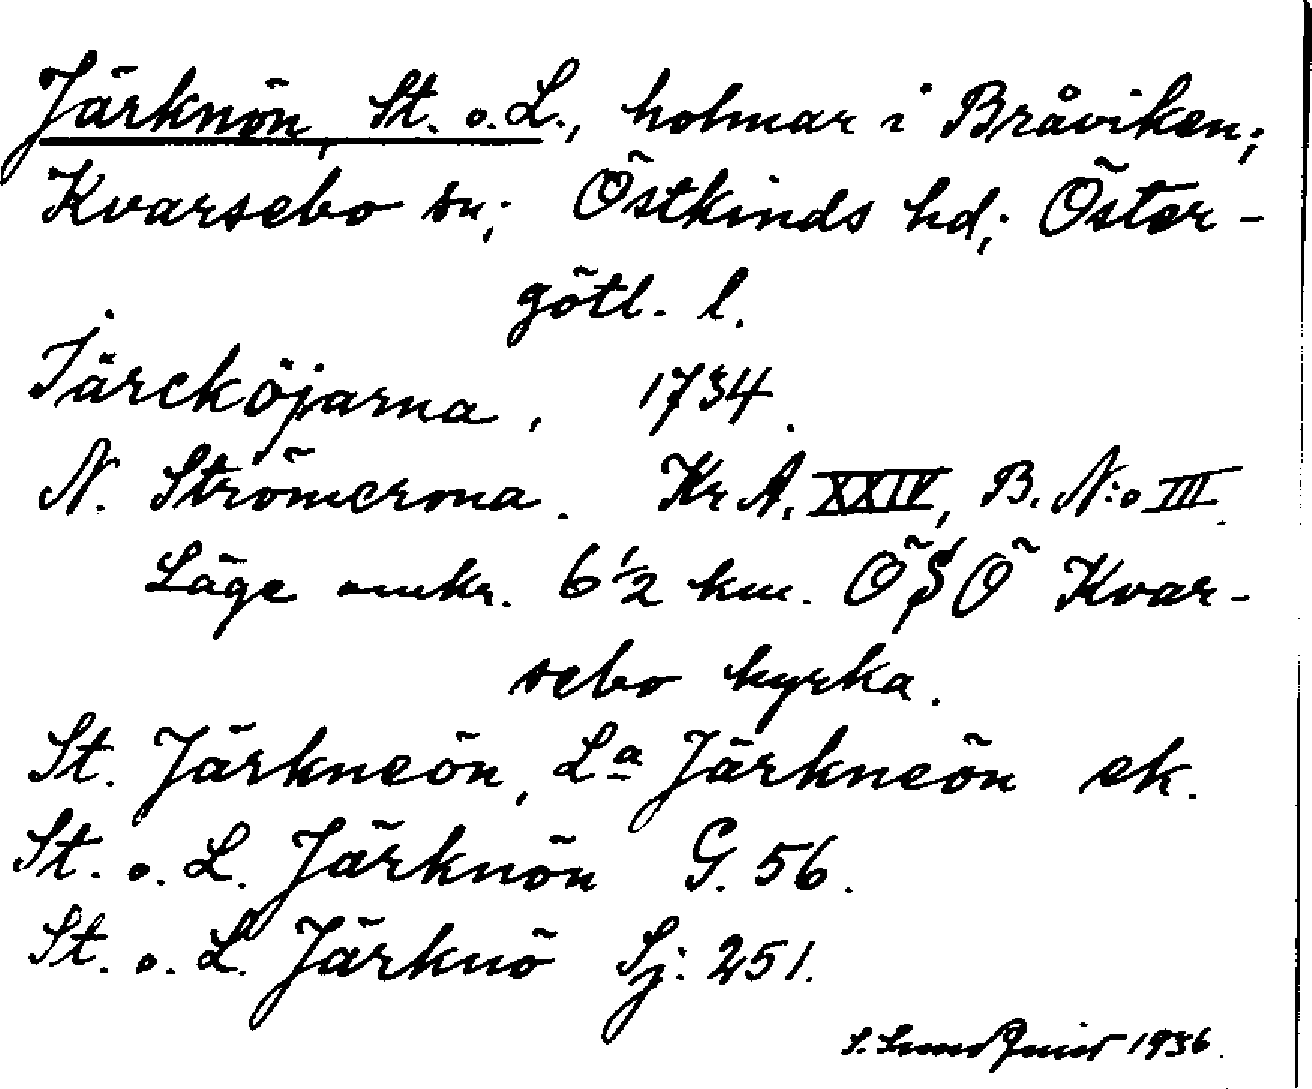 Järknön, St. o. L., holmar i Bråviken;
Kvarsebo sn; Östkinds hd; Öster-
götl. l.
Järcköjarna, 1734.
N. Strömcrona. Kr A. XXIV, B. N:o III.
Läge omkr. 6 1/2 km. ÖSÖ Kvar-
sebo kyrka.
St. Järkneön, La Järkneön ek.
St. o. L. Järknön G. 56.
St. o. L. Järknö Sj: 251.
S. 1936.